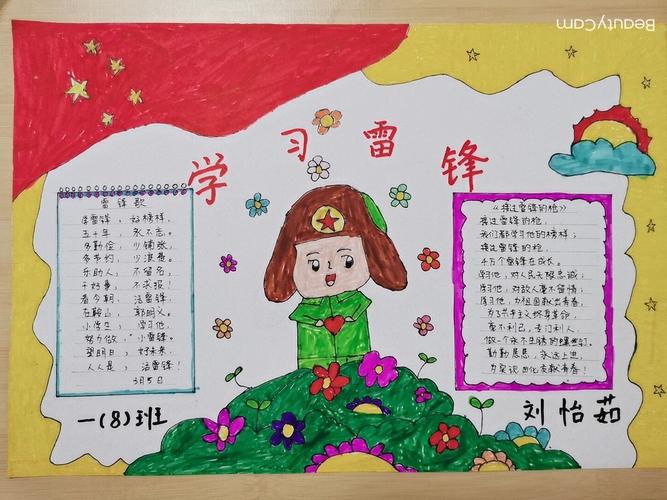 BeautyCam
学习雷锋
雷锋歌
学雷锋，好榜样，
五十年，永不忘。
多勤俭，少铺张，
多节约，少浪费。
乐助人，不留名，
干好事，不求报！
看今朝，活雷锋，
在鞍山，郭明义。
小学生，学习他，
努力做，小雷锋。
望明日，好未来，
人人是，活雷锋！
3月5日
《接过雷锋的枪》
接过雷锋的枪，
我们都学习他的榜样；
接过雷锋的枪，
千万个雷锋在成长。
学习他，对人民无限忠诚，
学习他，对敌人毫不留情；
学习他，为祖国献出青春，
为了共产主义终身革命，
毫不利己，专门利人，
做一个永不生锈的螺丝钉。
勤勤恳恳，永远上进，
为实现四化贡献青春！
一(8)班
刘怡茹